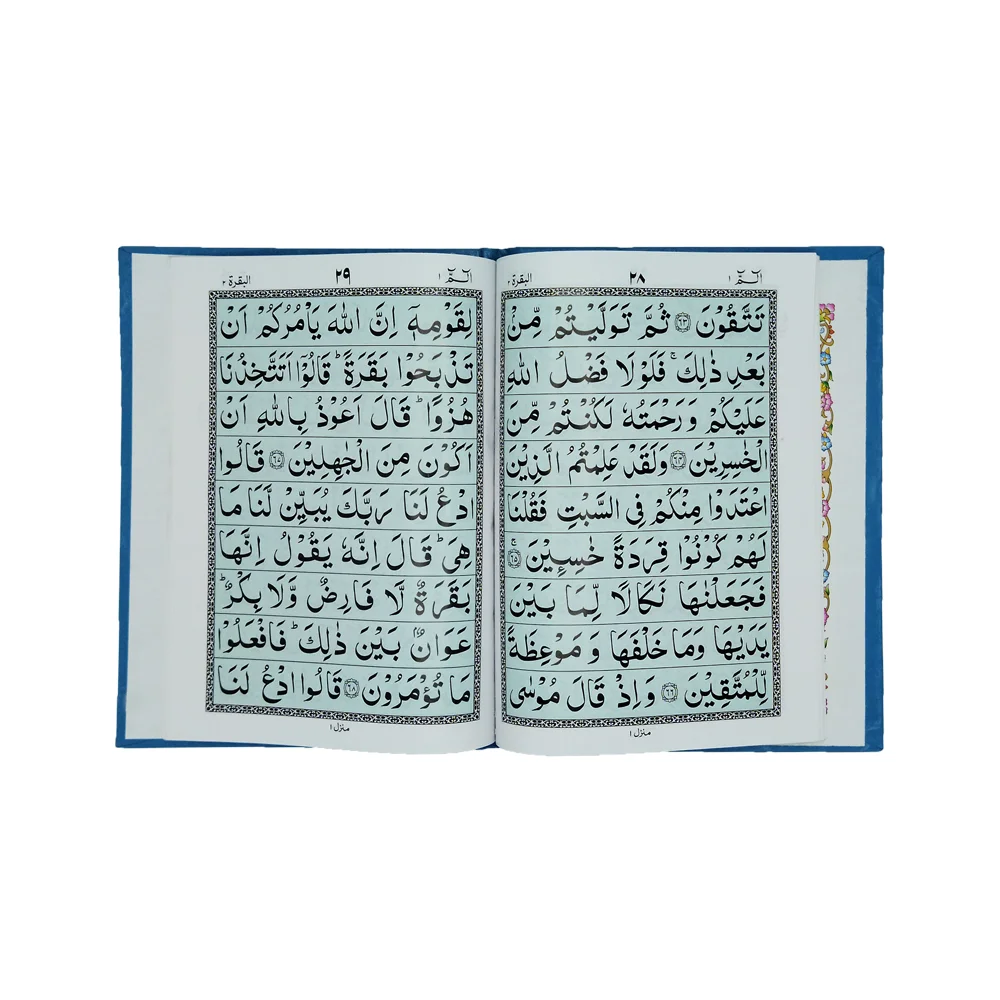 الٓمّٓ ١ ٢٨ البقرة ٢
تَتَّقُوْنَ ﴿٦٣﴾ ثُمَّ تَوَلَّيْتُمْ مِّنْۢ
بَعْدِ ذٰلِكَ ۚ فَلَوْلَا فَضْلُ اللّٰهِ
عَلَيْكُمْ وَرَحْمَتُهٗ لَكُنْتُمْ مِّنَ
الْخٰسِرِيْنَ ﴿٦٤﴾ وَلَقَدْ عَلِمْتُمُ الَّذِيْنَ
اعْتَدَوْا مِنْكُمْ فِى السَّبْتِ فَقُلْنَا
لَهُمْ كُوْنُوْا قِرَدَةً خٰسِـِٕيْنَ ﴿٦٥﴾ ۚ
فَجَعَلْنٰهَا نَكَالًا لِّمَا بَيْنَ
يَدَيْهَا وَمَا خَلْفَهَا وَمَوْعِظَةً
لِّلْمُتَّقِيْنَ ﴿٦٦﴾ وَاِذْ قَالَ مُوْسٰى
منزل ١
الٓمّٓ ١ ٢٩ البقرة ٢
لِقَوْمِهٖٓ اِنَّ اللّٰهَ يَاْمُرُكُمْ اَنْ
تَذْبَحُوْا بَقَرَةً ؕ قَالُوْٓا اَتَتَّخِذُنَا
هُزُوًا ؕ قَالَ اَعُوْذُ بِاللّٰهِ اَنْ
اَكُوْنَ مِنَ الْجٰهِلِيْنَ ﴿٦٧﴾ قَالُوا
ادْعُ لَنَا رَبَّكَ يُبَيِّنْ لَّنَا مَا
هِىَ ؕ قَالَ اِنَّهٗ يَقُوْلُ اِنَّهَا
بَقَرَةٌ لَّا فَارِضٌ وَّلَا بِكْرٌ ؕ
عَوَانٌۢ بَيْنَ ذٰلِكَ ؕ فَافْعَلُوْا
مَا تُؤْمَرُوْنَ ﴿٦٨﴾ قَالُوا ادْعُ لَنَا
منزل ١